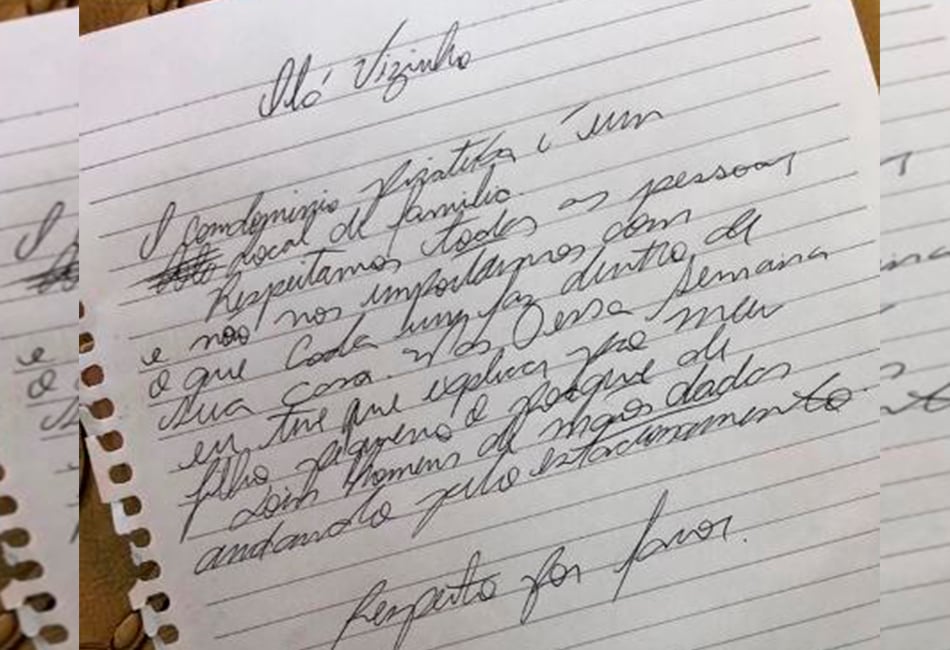 Olá Vizinho
O condominio Piratika é um
local de familia.
Respeitamos todas as pessoas
e não nos importamos com
o que cada um faz dentro de
sua casa. Mas essa semana
eu tive que explicar pro meu
filho pequeno o porque de
dois homens de mãos dadas
andando pelo estacionamento.
Respeito por favor.